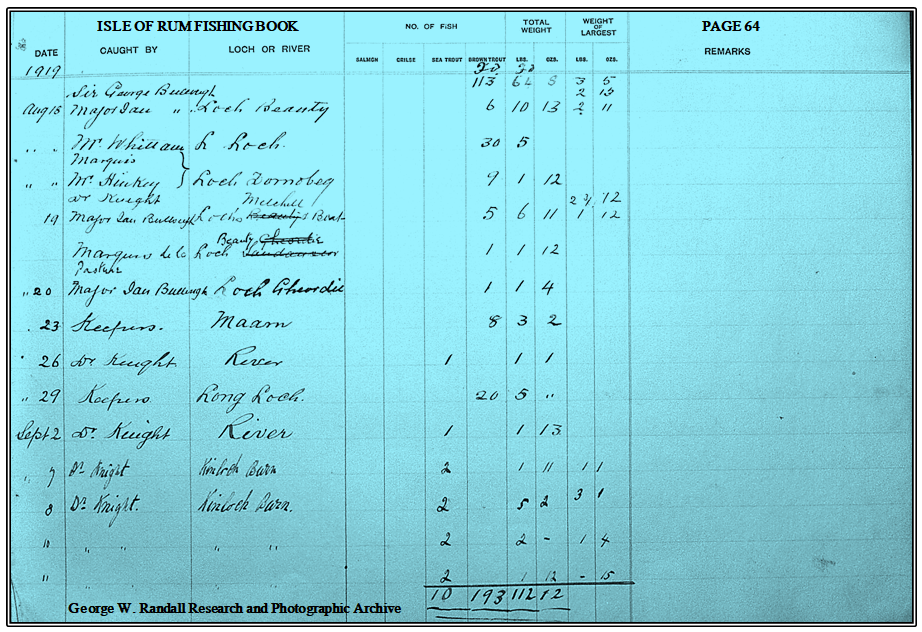 ISLE OF RUM FISHING BOOK PAGE 64
DATE CAUGHT BY LOCH OR RIVER NO. OF FISH TOTAL WEIGHT WEIGHT OF LARGEST REMARKS
SALMON GRILSE SEA TROUT BROWN TROUT LBS. OZS. LBS. OZS.
1919
113 64 8 3 5
Sir George Bullough 2 13
Aug 18 Major Ian " Loch Beauty 6 10 13 2 11
" " Mr. Whittam L Loch. 30 5
Marquis
" " Mr. Hinkey } Loch Dornobeg 9 1 12
Dr Knight Mitchell 2 3/4 12
19 Major Ian Bullough Lochs Beauty's Boat 5 6 11 1 12
Beauty Gheordie
Marquis de la Loch 1 1 12
Pasture
" 20 Major Ian Bullough Loch Gheordie 1 1 4
" 23 Keepers. Maam 8 3 2
" 26 Dr Knight River 1 1 1
" 29 Keepers Long Loch. 20 5 "
Sept 2 Dr. Knight River 1 1 13
" 7 Dr Knight Kinloch Burn 2 1 11 1 1
8 Dr Knight. Kinloch Burn. 2 5 2 3 1
10 " " " " 2 2 - 1 4
11 " " " " 2 1 12 - 15
10 193 112 12
George W. Randall Research and Photographic Archive